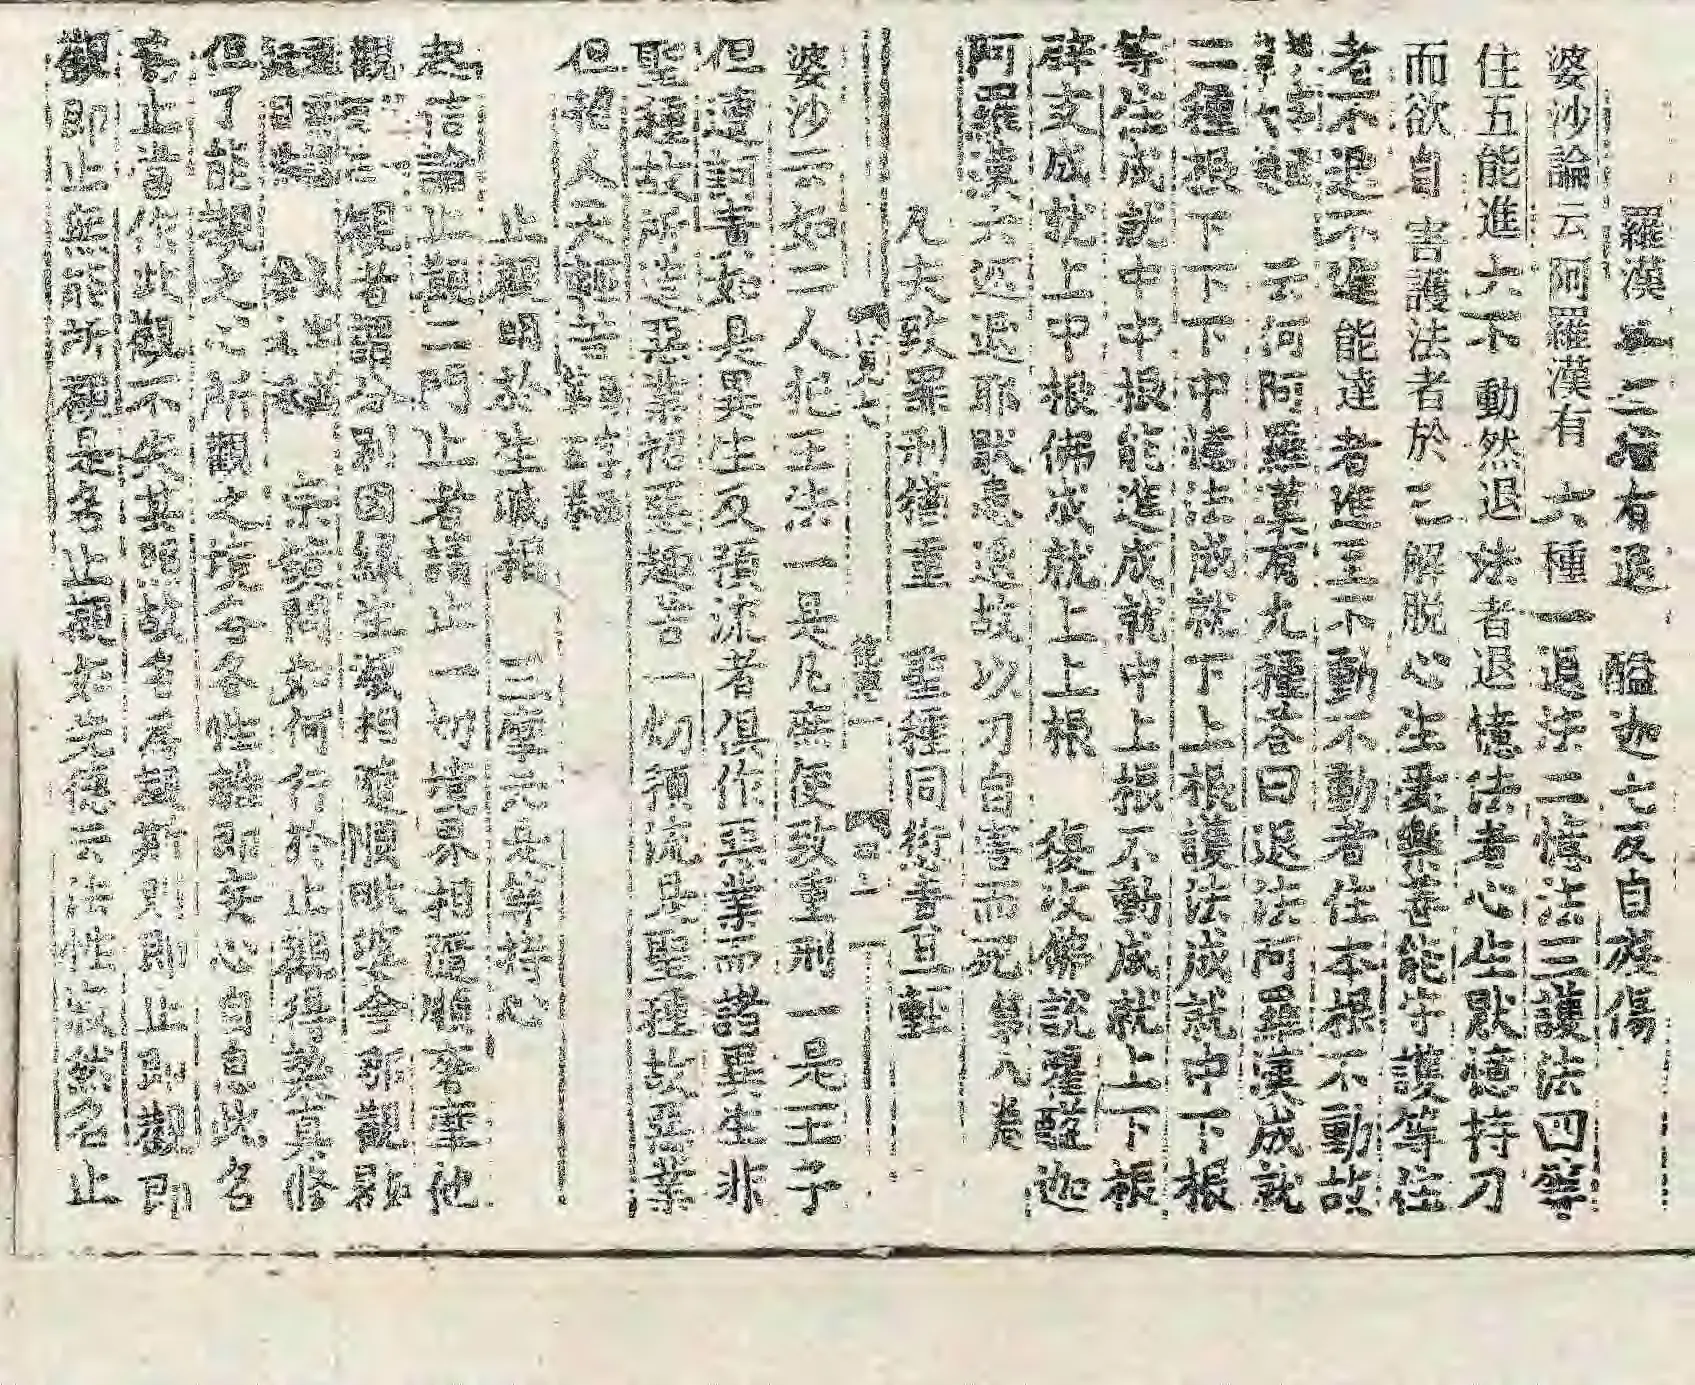 羅漢三有退 醯迦七反自殘傷
婆沙論云阿羅漢有六種一退法二憶法三護法四等
住五能進六不動然退法者退憶法者心生厭憶持刀
而欲自害護法者於三解脫心生愛樂善能守護等住
者不退不進能達者進至不動不動者住本根不動故
云何阿羅漢有九種答曰退法阿羅漢成就
三種根下下下中憶法成就下上根護法成就中下根
等住成就中中根能進成就中上根不動成就上下根
辟支成就上中根佛成就上上根 復次佛說羅醯迦
阿羅漢六返退耶厭患退故以刀自害而死第八卷
凡夫致罪刑猶重 聖種同愆責且輕
婆沙云如二人犯王法一是凡庶使致重刑一是王子
但遭訶責如是異生及預流者俱作惡業而諸異生非
聖種故所造惡業招惡趣苦一切預流是聖種故惡業
但招人天輕苦
止觀明於生滅相 三摩示是等持心
起信論止觀二門止者謂止一切境界相隨順奢摩他
觀 觀者謂分別因緣生滅相隨順毗婆舍那觀
宗鏡問如何行於止觀得契真修
但了能觀之心所觀之境各各性離即妄心自息此名
止當作此觀不失其照故名為觀斯則即止即觀即
觀即止無能所觀是名止觀如先德云法性寂然名止